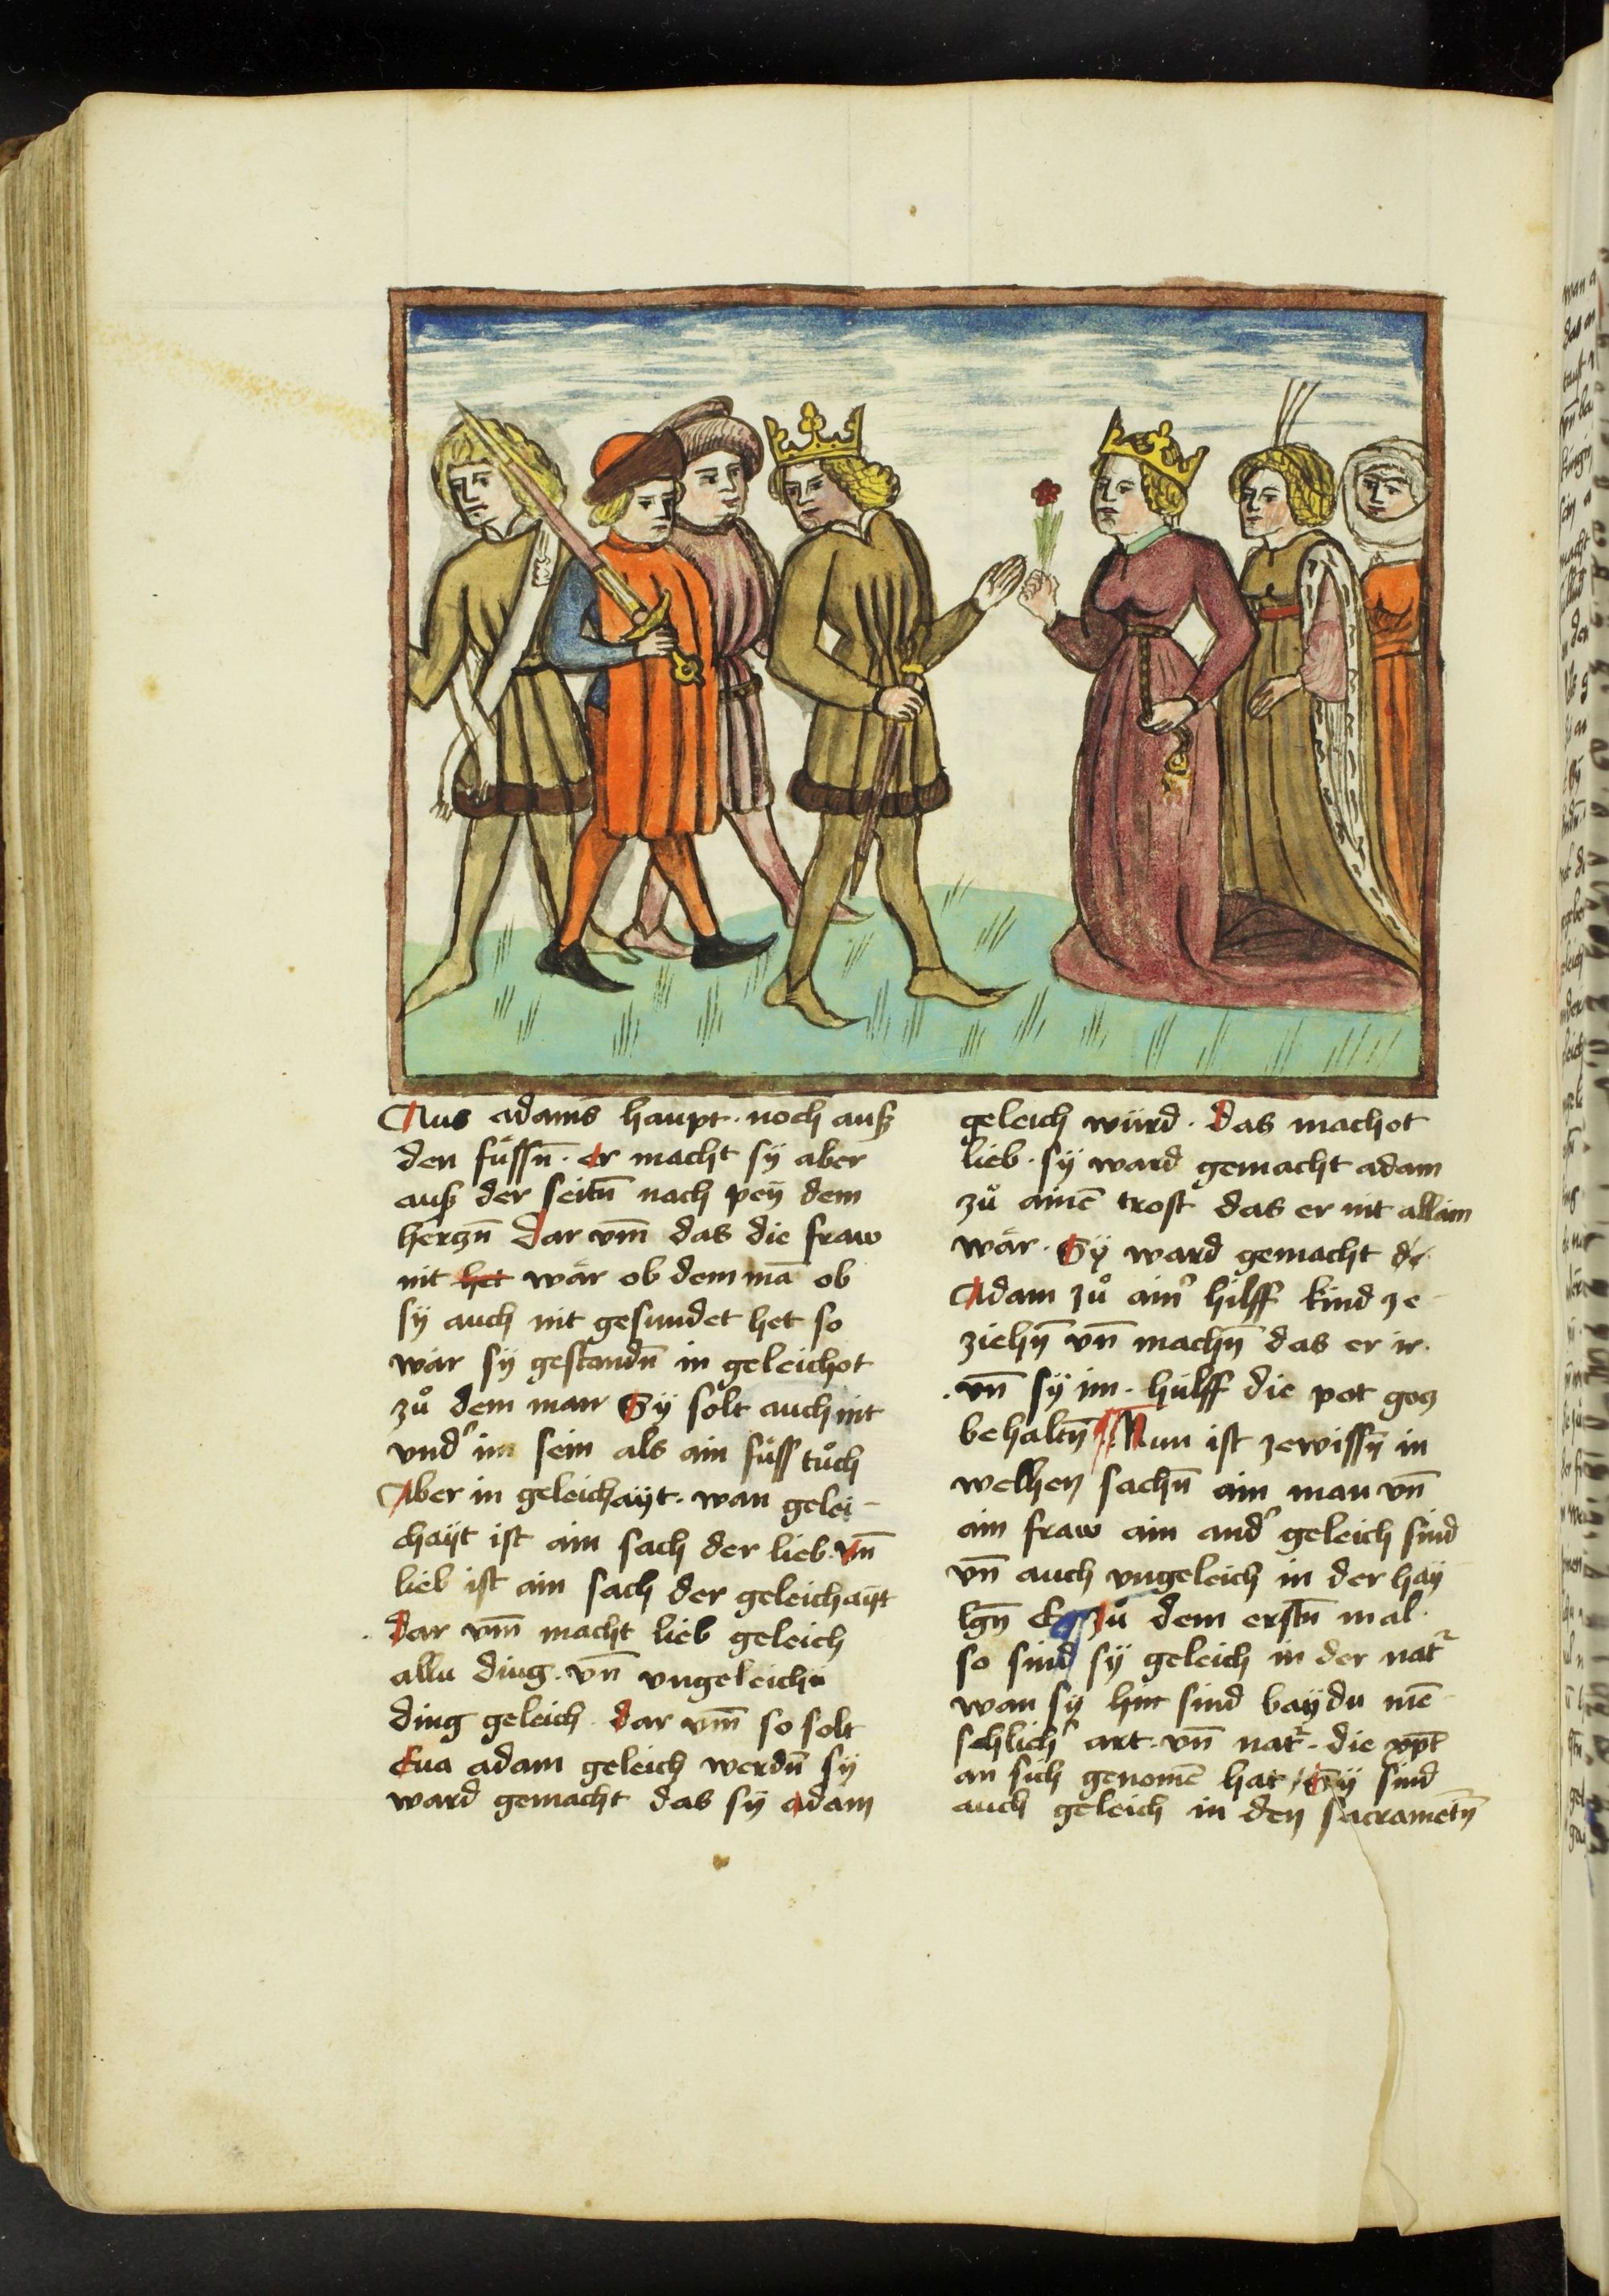 Aus adams haupt · noch auß
den fuͤssn̄ · er macht sÿ aber
auß der seitn̄ nach peÿ dem
herczn̄ Dar vm̄ das die fraw
nit het wär ob dem mā ob
sÿ auch nit gesundet het so
wär sÿ gestandn̄ in geleichot
zuͦ dem man Sÿ solt auch nit
vnd' im sein als ain fuͤß tuͦch
Aber in geleichaÿt · wan gelei-
chaÿt ist ain sach der lieb · Vn̄
lieb ist ain sach der geleichaÿt
Dar vm̄ macht lieb geleich
allu ding · vn̄ vngeleichu
ding geleich · Dar vm̄ so solt
Eua adam geleich werdn̄ sÿ
ward gemacht das sÿ adam
geleich würd · Das machot
lieb · sÿ ward gemacht adam
zuͦ ainē trost das er nit allain
wär · Sÿ ward gemacht
Adam zuͦ ain' hilff kind ze
ziehn̄ vn̄ machn̄ das er ir ·
· vn̄ sÿ im · hulff die pot gocz
behaltn̄ Nun ist zewissn̄ in
welhen sachn̄ ain man vn̄
ain fraw ain and' geleich sind
vn̄ auch vngeleich in der haÿ
lgn̄ E zuͦ dem erstn̄ mal ·
so sind sÿ geleich in der nat'
wan sÿ hie sind baÿdu mē
schlich' art · vn̄ nat' · die xp̄t
an sich genomē hat / Sÿ sind
auch geleich in den sacrametn̄